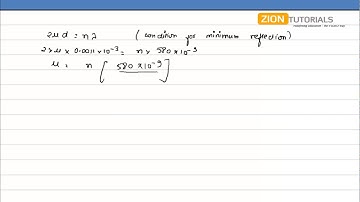 ZION
TUTORIALS
2μd = nλ (condition for minimum reflection)
2×μ × 0.0011×10⁻³ = n × 580×10⁻⁹
μ = n [ 580×10⁻⁹ ]